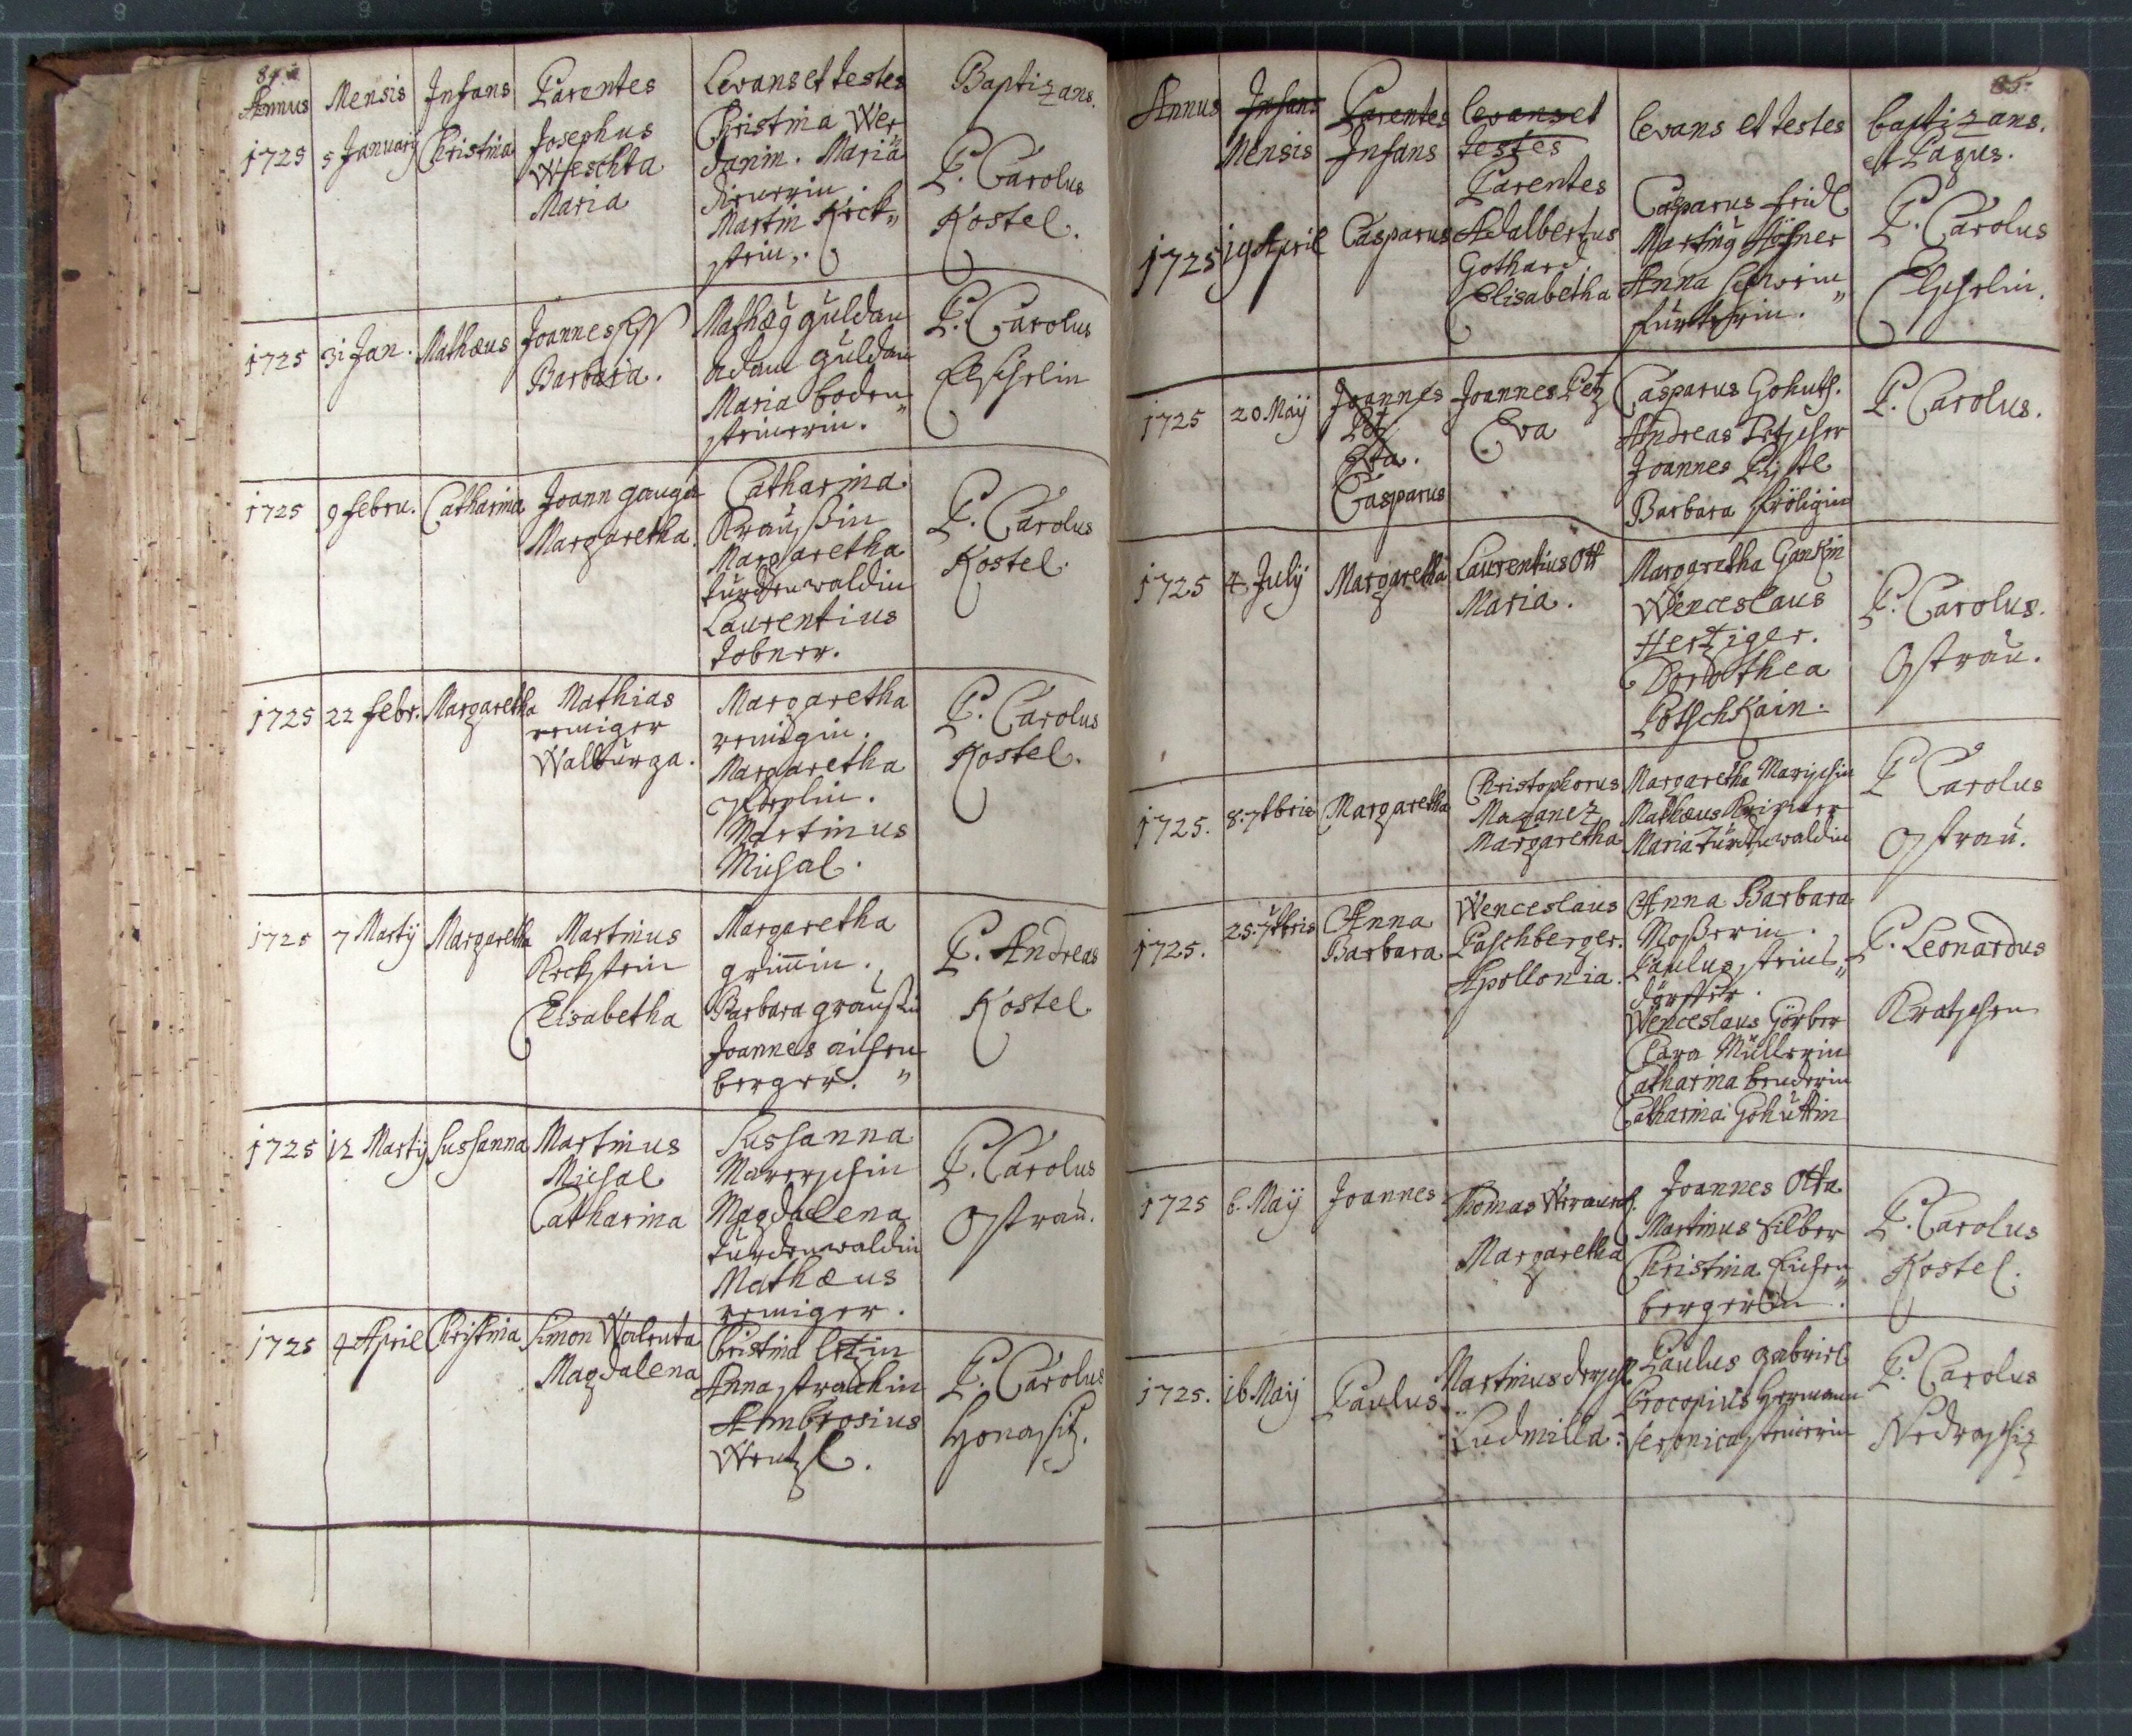 84.
Annus Mensis Infans Parentes Levans et testes Baptizans.
1725 5 January Christina Josephus
Weschta
Maria
Christina Wer
danin. Maria
Martin Keck„
stein.
P. Carolus
Kostel.
1725 31 Jan. Mathæus Joannes
Barbara.
Mathæg güldan
Adam güldan
Maria boden„
steinerin.
P. Carolus
Elschelin
1725 9 febru. Catharina Joann gauger
Margaretha.
Catharina
Kraußin
Margaretha
türdenwaldin
Laurentius
tobner.
P. Carolus
Kostel.
1725 22 febr. Margaretha Mathias
reiniger
Walburga.
Margaretha
Margaretha
Martinus
Michal.
P. Carolus
Kostel.
1725 7 Martij Margaretha Martinus
Keckstein
Elisabetha
Margaretha
grim̄in.
Barbara graußin
Joannes aichen„
berger.
P. Andreas
Kostel.
1725 12 Martij Sussanna Martinus
Michal
Catharina
Sussanna
Magdalena
türdenwaldin
Mathæus
reiniger.
P. Carolus
Ostrau.
1725 4 April Christina Simon Walenta
Magdalena
Christina letzin
Anna strackin
Ambrosius
Wentzl.
P. Carolus
85.
Annus Infans Parentes levans et levans et testes baptizans.
Mensis Infans testes et Pagus.
Parentes
1725 19 April Casparus Adalbertus
Gothard
Elisabetha
Casparus fridl
Marting Höfner
Anna Schwein„
fürterin.
P. Carolus
Elschelin.
1725 20. Maij Joannes
Petz
Eva.
Casparus
Joannes Petz
Eva
Casparus Gohuth.
Andreas
Joannes
Barbara fröligin
P. Carolus.
1725 4. July Margaretha Laurentius Ott
Maria.
Margaretha Gankin
Wenceslaus
Hertziger.
Dorothea
Potschkain.
P. Carolus.
Ostrau.
1725. 8. 7bris Margaretha Christophorus
Mazanez
Margaretha
Margaretha
Mathæus
Maria türdenwaldin
P Carolus
Ostrau.
1725. 25. 7bris Anna
Barbara
Wenceslaus
Paschberger.
Apollonia.
Anna Barbara
Moßerin.
Paulus steins„
dörffer.
Wenceslaus Görber
Clara Müllerin
Catharina benderin
Catharina Gohüttin
P. Leonardus
Kratschen
1725 6. Maij Joannes Thomas
Margaretha
Joannes Otta
Martinus Silber
Christina Eichen„
bergerin.
P. Carolus
Kostel.
1725. 16 Maij Paulus Martinus
Ludmilla.
Paulus gabriel
Procopius Hermann
Veronica steinerin
P. Carolus